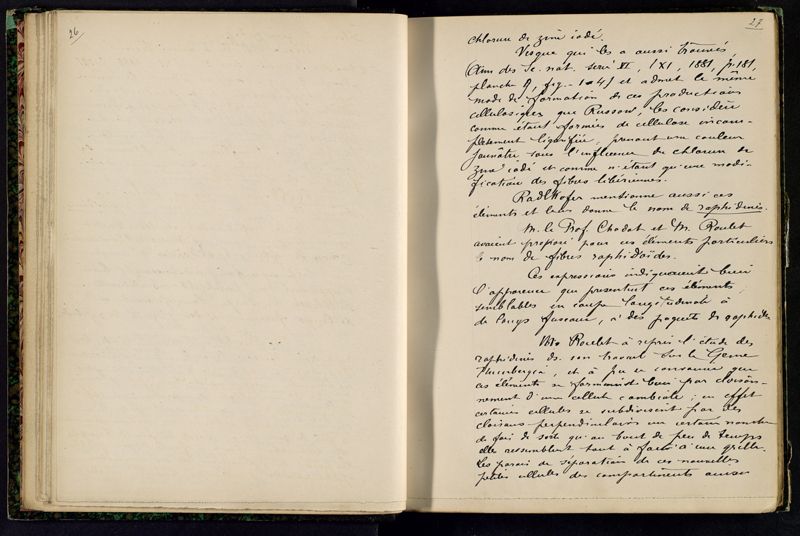 26
27
chlorure de zinc iodé.
Vesque qui les a aussi trouvés
(Ann des Sc. nat. série VI, (XI, 1881, p. 181,
planche 9, fig. 1 à 4) et admet le même
mode de formation de ces productions
cellulosiques que Russow, les considère
comme étant formées de cellulose incom-
plètement lignifiée, prenant une couleur
jaunâtre sous l'influence du chlorure de
zinc iodé et comme n'étant qu'une modi-
fication des fibres libériennes.
Radlkofer mentionne aussi ces
éléments et leur donne le nom de raphidines.
M. le Prof Chodat et M. Roulet
avaient proposé pour ces éléments particuliers
le nom de fibres raphidoïdes.
Ces expressions indiquaient bien
l'apparence que présentent ces éléments,
semblables en coupe longitudinale à
de longs fuseaux, à des paquets de raphides
Mr Roulet a repris l'étude des
raphidines ds. son travail sur le Genre
Thunbergia, et a pu se convaincre que
ces éléments se formaient bien par cloison-
nement d'une cellule cambiale ; en effet
certaines cellules se subdivisent par des
cloisons perpendiculaires un certain nombre
de fois de sorte qu'au bout de peu de temps
elles ressemblent tout à fait à une grille.
Les parois de séparation de ces nouvelles
petites cellules des compartiments ainsi